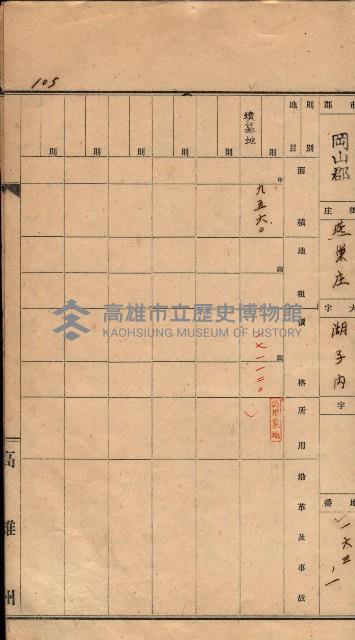 105
市郡
岡山郡
街庄
燕巢庄
大字
湖子內
字
地番
一六三ノ一
則別
地目
面積
地租
價格
所用
沿革及事故
則
墳墓地
甲
九五六〇
圓
圓
公用墓地
則
則
則
則
則
高雄州
高雄市立歷史博物館
KAOHSIUNG MUSEUM OF HISTORY